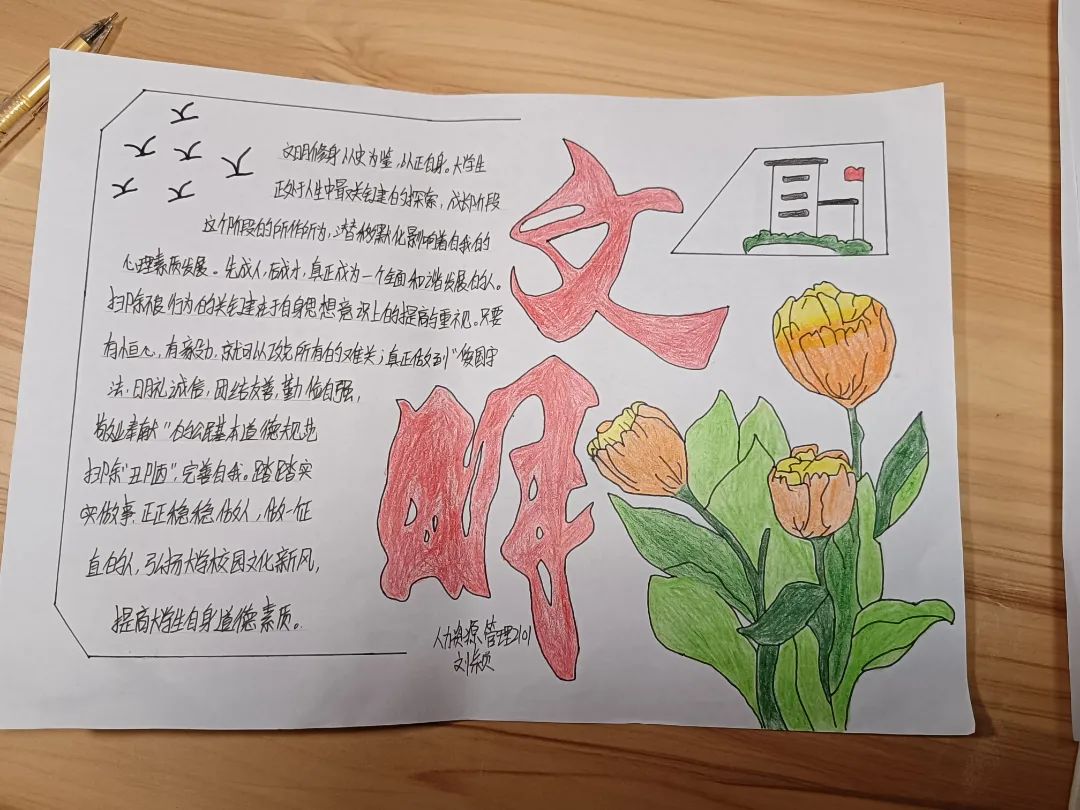 文明修身,以史为鉴,以正自身。大学生
正处于人生中最关键的探索,成长阶段
这个阶段的所作所为,潜移默化影响着自我的
心理素质发展。先成人,后成才,真正成为一个全面和谐发展的人。
扫除不良行为的关键在于自身思想意识上的提高与重视。只要
有恒心,有毅力,就可以攻克所有的难关;真正做到"爱国守
法,明礼诚信,团结友善,勤俭自强,
敬业奉献"的公民基本道德规范
扫除"丑陋",完善自我。踏踏实
实做事,正正稳稳做人,做一征
直的人,弘扬大学校园文化新风,
提高大学生自身道德素质。
文明
人力资源管理2101